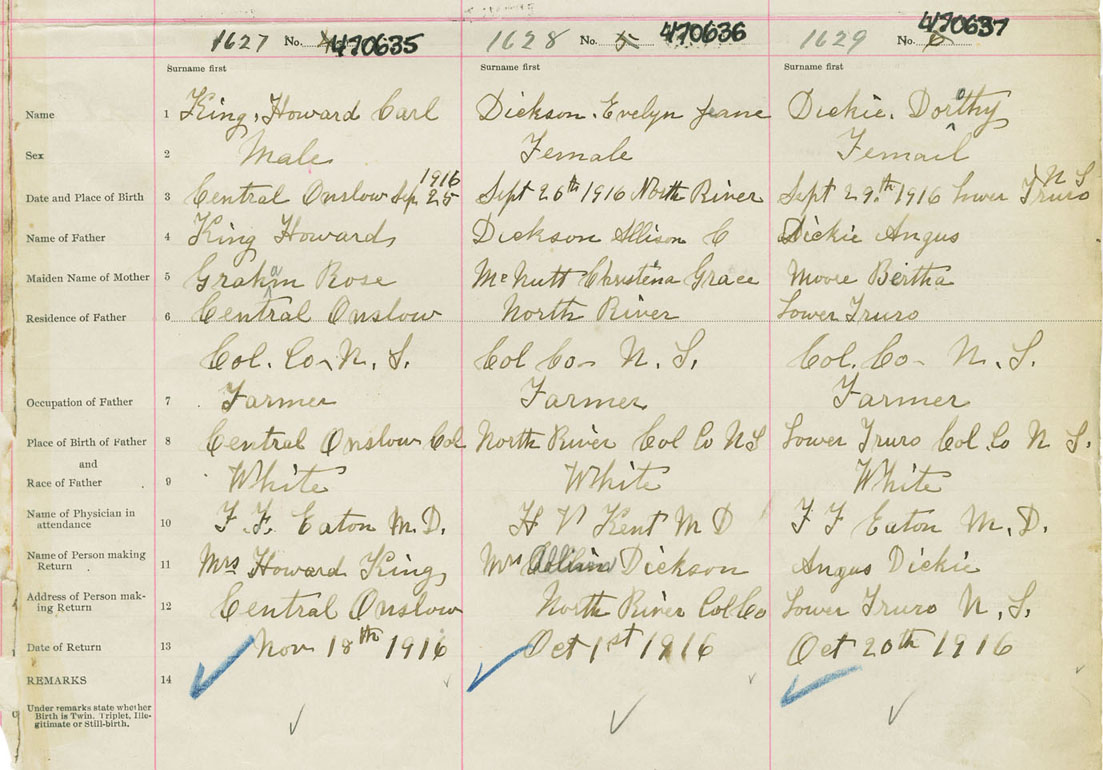 1627 No. 470635 1628 No. 5 470636 1629 No. 6 470637
Surname first Surname first Surname first
Name 1 King, Howard Carl Dickson. Evelyn Jeane Dickie. Dorothy
Sex 2 Male Female Femail
Date and Place of Birth 3 Central Onslow Sep 25 1916 Sept 26th 1916 North River Sept 29th 1916 Lower Truro N S
Name of Father 4 King Howard Dickson Allison C Dickie Angus
Maiden Name of Mother 5 Graham Rose McNutt Christena Grace Moore Bertha
Residence of Father 6 Central Onslow North River Lower Truro
Col. Co N. S. Col Co N. S. Col. Co N. S.
Occupation of Father 7 Farmer Farmer Farmer
Place of Birth of Father 8 Central Onslow Col North River Col Co N S Lower Truro Col. Co N S.
and
Race of Father 9 White White White
Name of Physician in
attendance 10 F. F. Eaton M.D. H V Kent M D F F Eaton M. D.
Name of Person making
Return 11 Mrs Howard King Mrs Dickson Angus Dickie
Address of Person mak-
ing Return 12 Central Onslow North River Col Co Lower Truro N. S.
Date of Return 13 Nov 18th 1916 Oct 1st 1916 Oct 20th 1916
REMARKS 14
Under remarks state whether
Birth is Twin. Triplet, Ille-
gitimate or Still-birth.